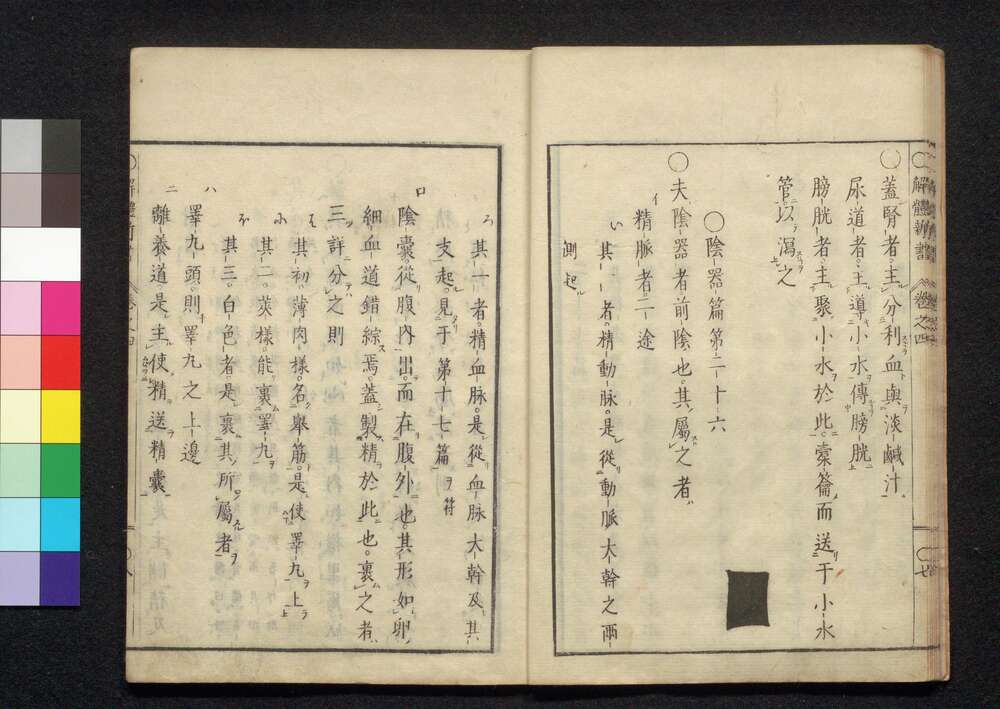 ○蓋腎者主分利血與淡鹹汁
尿道者主導小水傳膀胱
膀胱者主聚小水於此橐籥而送于小水
管以瀉之
○陰器篇第二十六
○夫陰器者前陰也其屬之者
イ
精脈者二途
い
其一者精動脈是從動脈大幹之兩
測起
ろ
其一者精血脉是從血脉大幹及其
支起見于第十七篇ヲ符
ロ
陰嚢從腹内出而在腹外也其形如卵
細血道錯綜焉蓋製精於此也裹之者
三詳分之則
其初薄肉様名舉筋是使睪九上
に
其二莢様能裏睪九
ほ
其三白色者是裹其所屬者
ハ
睪九頭則睪九之上邊
ニ
離養道是主使精送精囊
解體新書 卷之四